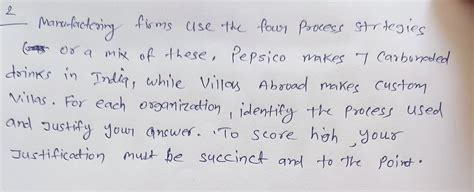 2
Manufactering firms use the four Process strtegies
or a mix of these. Pepsico makes 7 Carbonaded
drinks in India, while Villas Abroad makes Custom
Villas. For each organization, identify the Process used
and Justify your answer. To score high, your
Justification must be succinct and to the Point.